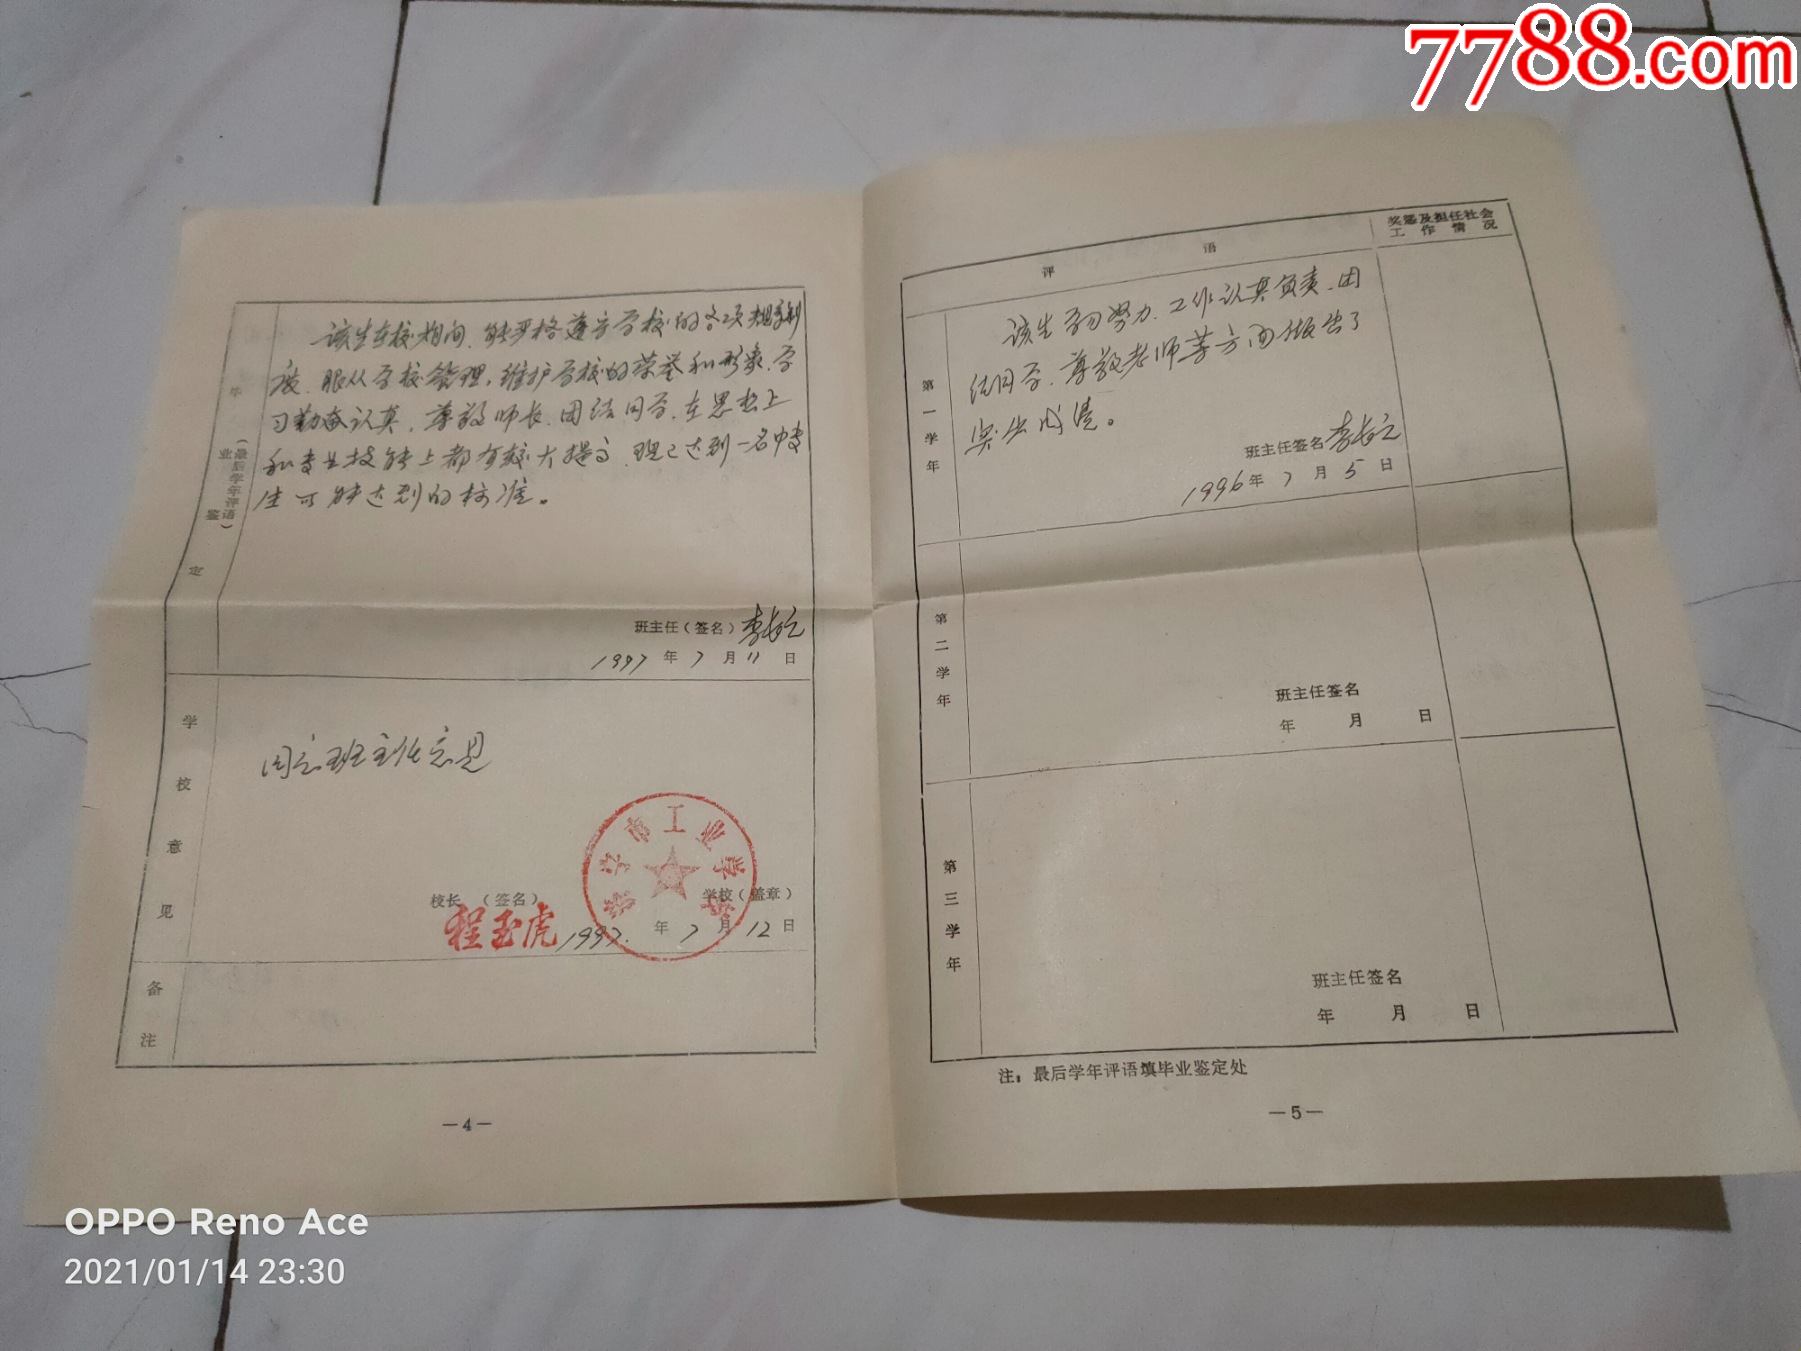 7788.com
毕业鉴定
(最后学年评语)
该生在校期间、能严格遵守学校的各项规章制
度、服从学校管理，维护学校的荣誉和形象、学
习勤奋认真，尊敬师长、团结同学、在思想上
和专业技能上都有较大提高、现已达到一名中专
生可能达到的标准。
班主任(签名)
1997年7月11日
学校意见
同意班主任意见
校长 (签名)
学校(盖章)
程玉虎
1997.年7月12日
市工商学校
备注
—4—
评语
奖惩及担任社会
工作情况
第一学年
该生学习努力、工作认真负责、团
结同学、尊敬老师等方面做出了
突出成绩。
班主任签名
1996年7月5日
第二学年
班主任签名
年 月 日
第三学年
班主任签名
年 月 日
注：最后学年评语填毕业鉴定处
—5—
OPPO Reno Ace
2021/01/14 23:30